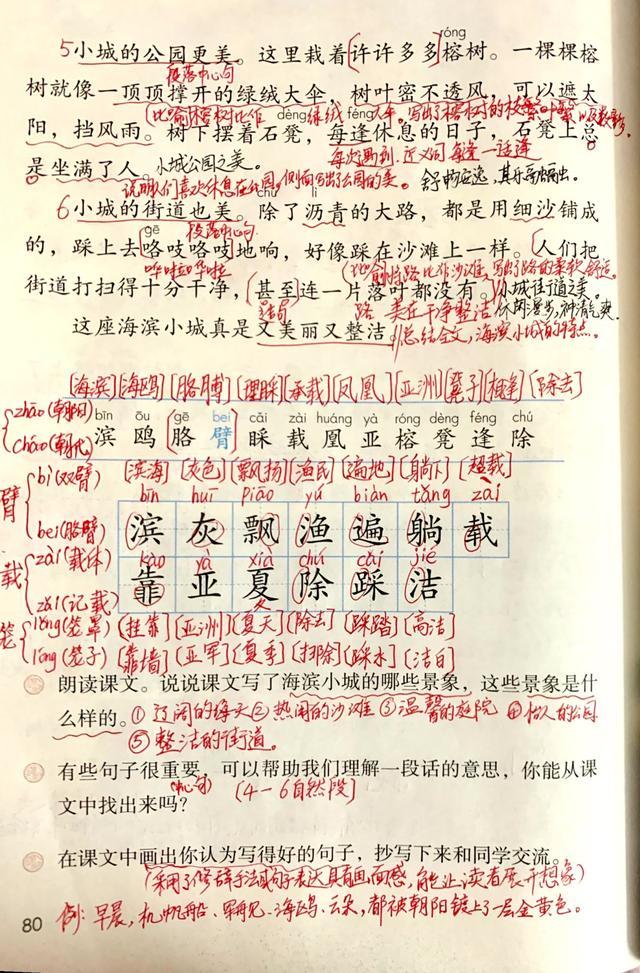 róng
5小城的公园更美。这里栽着许许多多榕树。一棵棵榕
段落中心句
树就像一顶顶撑开的绿绒大伞，树叶密不透风，可以遮太
dèng féng
阳，挡风雨。树下摆着石凳，每逢休息的日子，石凳上总
每次遇到
是坐满了人。小城公园之美。
6小城的街道也美。除了沥青的大路，都是用细沙铺成
gē 段落中心句
的，踩上去咯吱咯吱地响，好像踩在沙滩上一样。人们把
街道打扫得十分干净，甚至连一片落叶都没有。小城街道之美。
这座海滨小城真是又美丽又整洁。总结全文，海滨小城的特点。
[海滨][海鸥][胳膊][理睬][承载][凤凰][亚洲][凳子][相逢][除去]
zhāo(朝阳)
bīn ōu gē bei cǎi zài huáng yà róng dèng féng chú
cháo(朝代)
滨 鸥 胳 臂 睬 载 凰 亚 榕 凳 逢 除
臂 bì(双臂) [滨海][灰色][飘扬][渔民][遍地][躺下][超载]
bīn huī piāo yú biàn tǎng zài
bei(胳臂) 滨 灰 飘 渔 遍 躺 载
载 zài(载体) kào yà xià chú cǎi jié
zǎi(记载) 靠 亚 夏 除 踩 洁
笼 lǒng(笼罩) [挂靠][亚洲][夏天][除去][踩踏][高洁]
lóng(笼子) [靠墙][亚军][夏季][排除][踩水][洁白]
朗读课文。说说课文写了海滨小城的哪些景象，这些景象是什
么样的。①辽阔的海天②热闹的沙滩③温馨的庭院④怡人的公园
⑤整洁的街道。
有些句子很重要，可以帮助我们理解一段话的意思，你能从课
中心句
文中找出来吗？(4—6自然段]
在课文中画出你认为写得好的句子，抄写下来和同学交流。
(采用了修辞手法或句子表达具有画面感，能让读者展开想象)
例：早晨，机帆船、军舰、海鸥、云朵，都被朝阳镀上了一层金黄色。
80